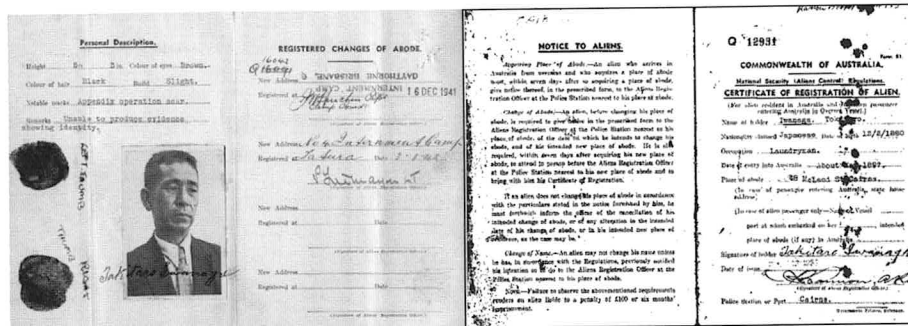 Personal Description.
Height 5 Colour of eyes Brown.
Colour of hair Black Build Slight.
Notable marks Appendix operation scar.
Remarks Unable to produce evidence
showing identity.
LEFT THUMB
RIGHT THUMB
REGISTERED CHANGES OF ABODE.
New Address
GAYTHORNE, BRISBANE.
INTERNMENT CAMP
16 DEC 1941
Registered at
New Address No 4 Internment Camp
Registered at Tatura Date
(Signature of Aliens Registration Officer.)
New Address
Registered at Date
(Signature of Aliens Registration Officer.)
New Address
Registered at Date
(Signature of Aliens Registration Officer.)
NOTICE TO ALIENS.
Approving Place of Abode.—An alien who arrives in
Australia from overseas and who acquires a place of abode
must, within seven days after so acquiring a place of abode,
give notice thereof, in the prescribed form, to the Aliens Regis-
tration Officer at the Police Station nearest to his place of abode.
Change of Abode.—An alien, before changing his place of
abode, is required to give notice in the prescribed form to the
Aliens Registration Officer at the Police Station nearest to his
place of abode, of the date on which he intends to change his
abode, and of his intended new place of abode. He is also
required, within seven days after acquiring his new place of
abode, to attend in person before the Aliens Registration Officer
at the Police Station nearest to his new place of abode and to
bring with him his Certificate of Registration.
If an alien does not change his place of abode in accordance
with the particulars stated in the notice furnished by him, he
must forthwith inform the officer of the cancellation of his
intended change of abode, or of any alteration in the intended
date of his change of abode, or in his intended new place of
residence, as the case may be.
Change of Name.—An alien may not change his name unless
he has, in accordance with the Regulations, previously notified
his intention so to do to the Aliens Registration Officer at the
Police Station nearest to his place of abode.
Note.—Failure to observe the abovementioned requirements
renders an alien liable to a penalty of £100 or six months'
imprisonment.
Q 12931
COMMONWEALTH OF AUSTRALIA.
National Security (Aliens Control) Regulations.
CERTIFICATE OF REGISTRATION OF ALIEN.
(For alien resident in Australia and alien passenger
entering Australia by Oversea Vessel.)
Name of holder
Nationality Japanese Date of birth 12/2/1880
Occupation Laundryman.
Date of entry into Australia About 1897.
Place of abode McLeod St Cairns.
(In case of passenger entering Australia, state future
address)
(In case of alien passenger only—Name of Vessel
port at which embarked on her intended
place of abode (if any) in Australia
Signature of holder Takitaro Iwanaga
Date of issue
(Signature of Aliens Registration Officer.)
Police Station or Port Cairns.